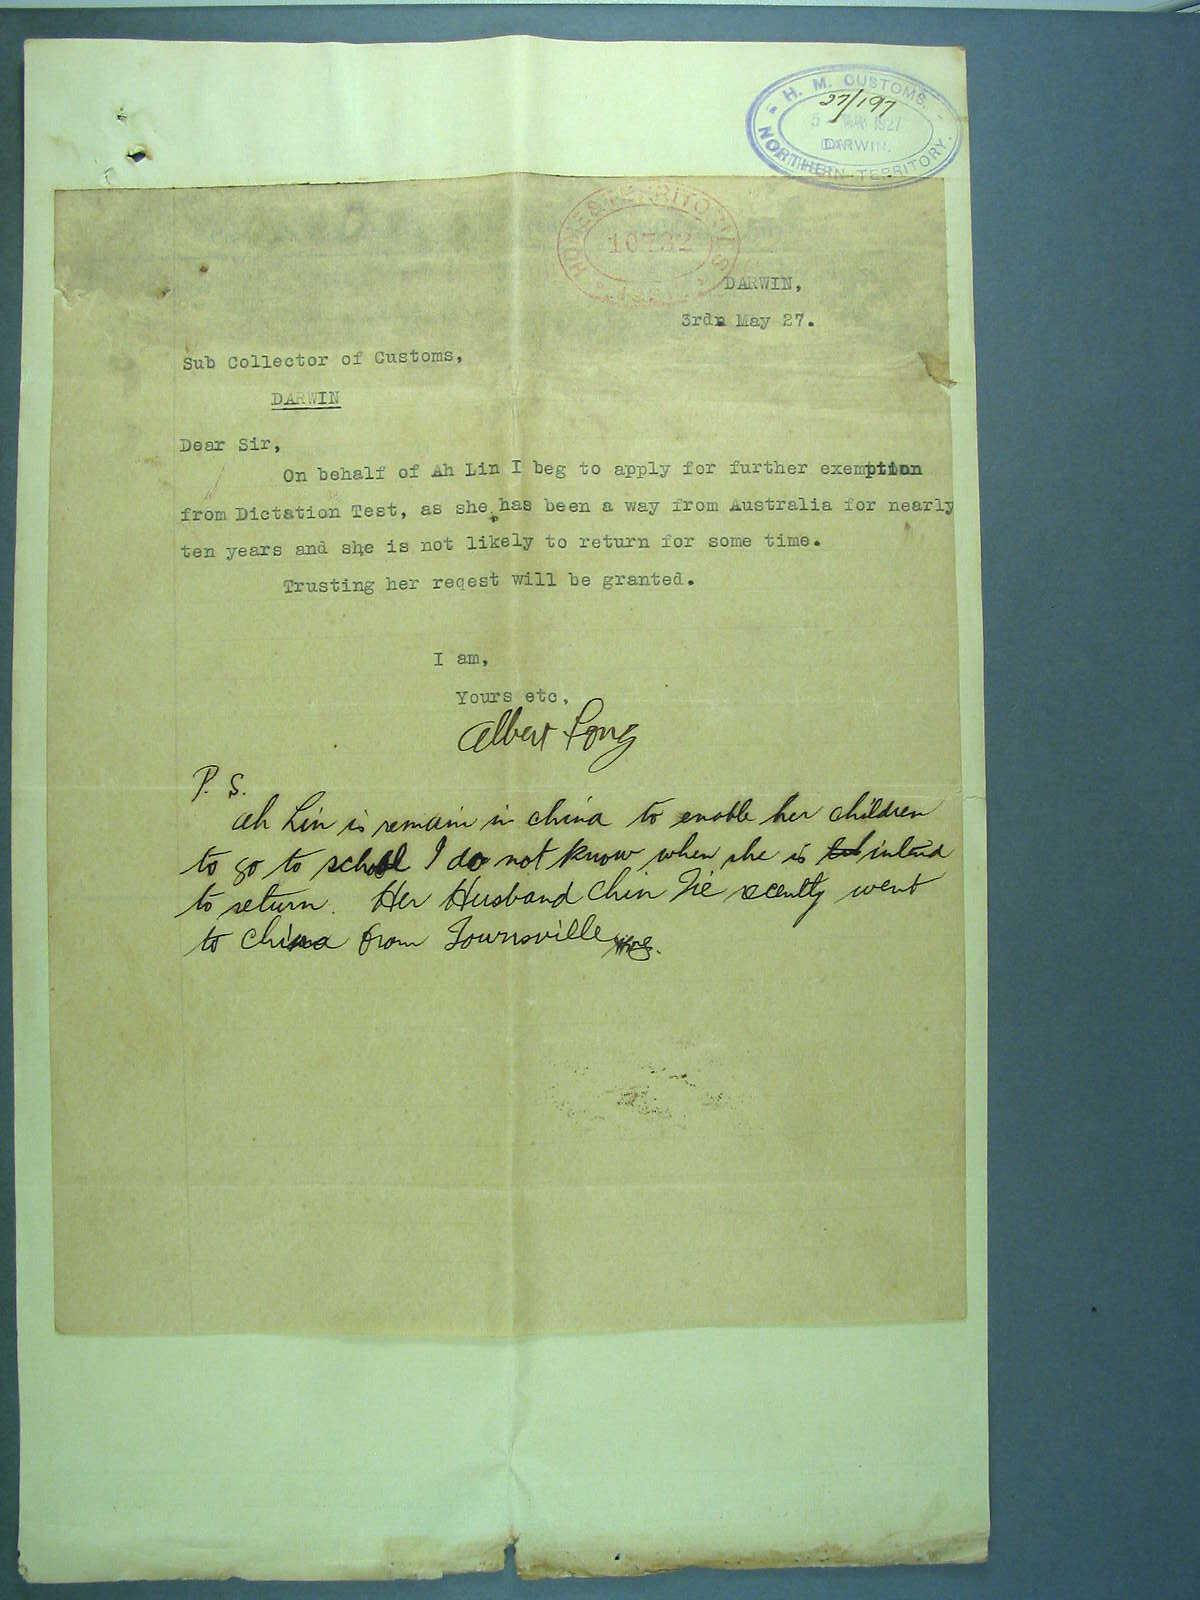 H. M. CUSTOMS.
27/197
5 MAY 1927
DARWIN.
NORTHERN TERRITORY.
HOME & TERRITORIES
10732
DARWIN,
3rd May 27.
Sub Collector of Customs,
DARWIN
Dear Sir,
On behalf of Ah Lin I beg to apply for further exemption
from Dictation Test, as she has been a way from Australia for nearly
ten years and she is not likely to return for some time.
Trusting her reqest will be granted.
I am,
Yours etc,
Albert Fong
P. S.
Ah Lin is remain in China to enable her children
to go to school I do not know when she is intend
to return. Her Husband Chin Tie recently went
to China from Townsville